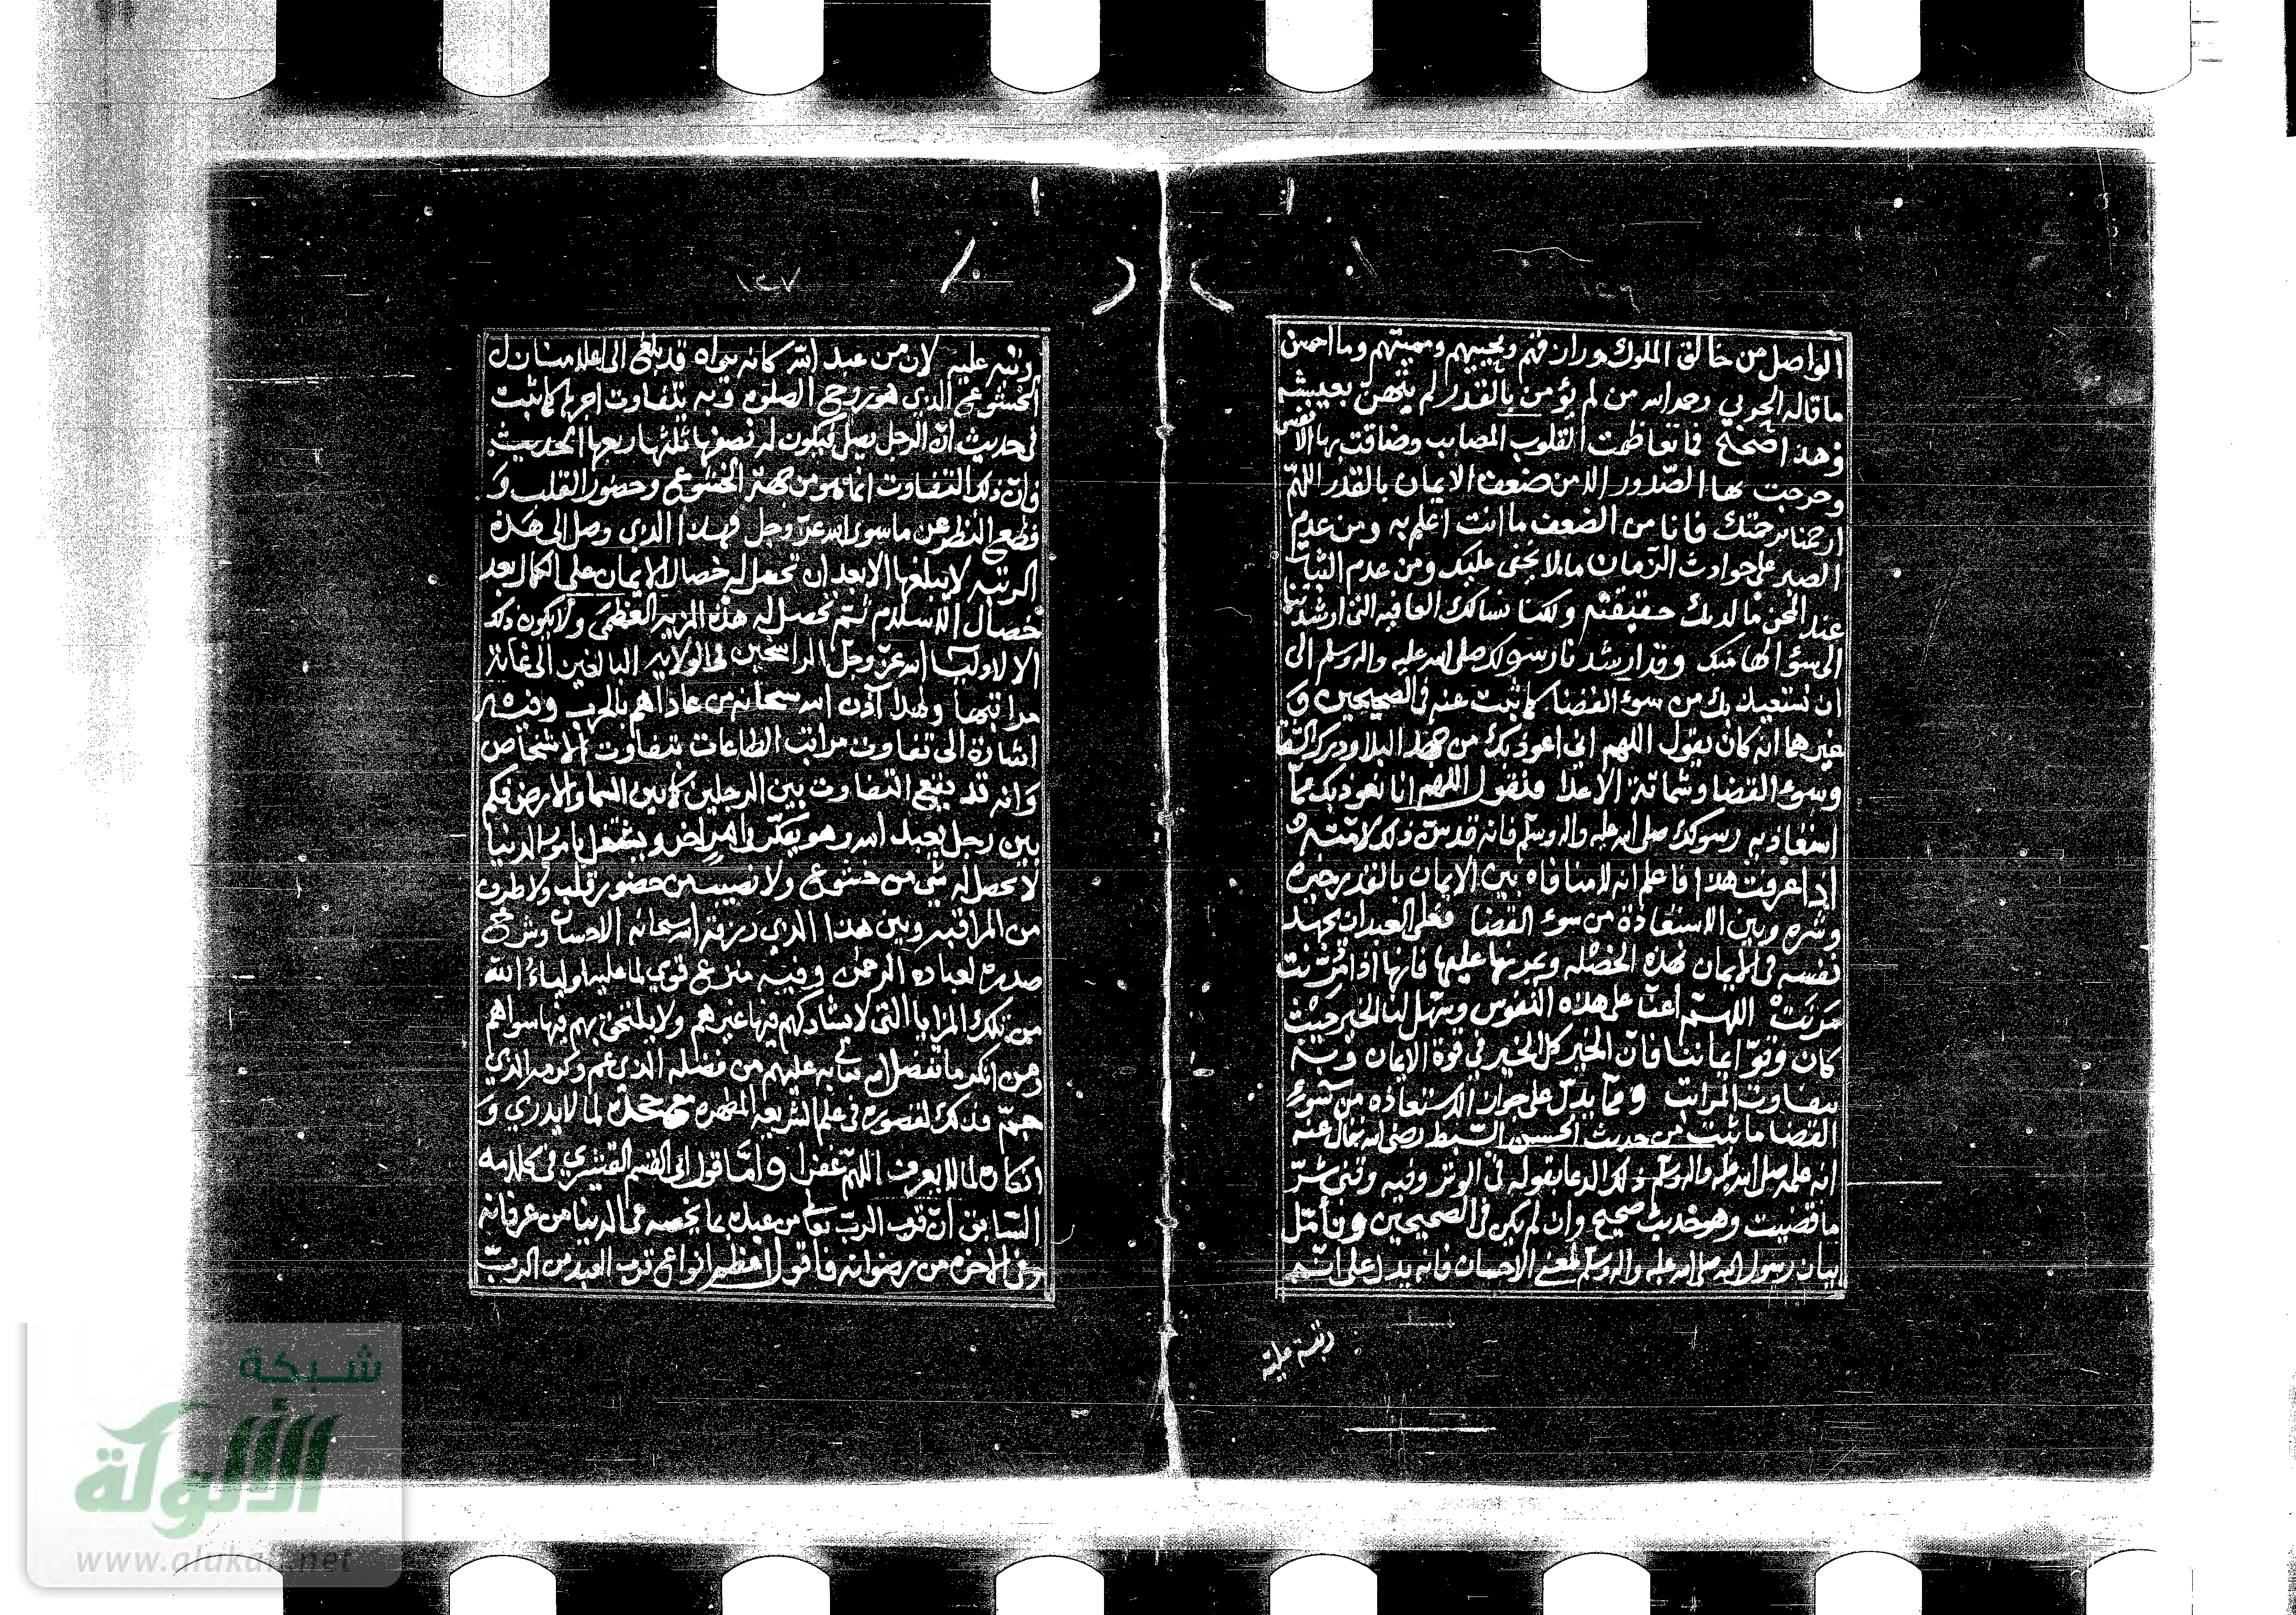 ١٢٦
الواصل من خالق الملوك ورازقهم ومحييهم ومميتهم وما احسن
ما قاله الحربي رحمه الله من لم يؤمن بالقدر لم يتهن بعيشه
وهذا صحيح فما تعاظمت القلوب المصايب وضاقت بها الانفس
وحرجت بها الصدور الا من ضعف الايمان بالقدر اللهم
ارحمنا برحمتك فانا من الضعف ما انت اعلم به ومن عدم
الصبر على حوادث الزمان ما لا يخفى عليك ومن عدم الثبات
عند المحن ما لديك حقيقته ولكنا نسالك العافيه التي ارشدتنا
الى سؤالها منك وقد ارشدنا رسولك صلى الله عليه واله وسلم الى
ان نستعيذ بك من سوء القضا كما ثبت عنه في الصحيحين و
غيرهما انه كان يقول اللهم اني اعوذ بك من جهد البلا ودرك الشقا
وسوء القضا وشماتة الاعدا فنقول اللهم انا نعوذ بك مما
استعاذ به رسولك صلى الله عليه واله وسلم فانه قد سن ذلك لامته و
اذا عرفت هذا فاعلم انه لا منافاه بين الايمان بالقدر خيره
وشره وبين الاستعاذة من سوء القضا فعلى العبد ان يجهد
نفسه في الايمان بهذه الخصله ويمرنها عليها فانها اذا مرنت
مرنت اللهم اعنا على هذه النفوس وسهل لنا الخير حيث
كان وقو ايماننا فان الخير كل الخير في قوة الايمان وبه
تتفاوت المراتب ومما يدل على جواز الاستعاذه من سوء
القضا ما ثبت من حديث الحسن السبط رضي الله تعالى عنه
انه علمه صلى الله عليه واله وسلم ذلك الدعا بقوله في الوتر وفيه وقني شر
ما قضيت وهو حديث صحيح وان لم يكن في الصحيحين وتأمل
بيان رسول الله صلى الله عليه واله وسلم لمعنى الاحسان فانه يدل على انه
رتبة علية
١٢٧
رتبه عليه لان من عبد الله كانه يراه قد بلغ الى اعلا منازل
الخشوع الذي هو روح الصلوه وبه يتفاوت اجرها كما ثبت
في حديث ان الرجل يصلي فيكون له نصفها ثلثها ربعها الحديث
وان ذلك التفاوت انما هو من جهة الخشوع وحضور القلب و
قطع النظر عن ما سوى الله عز وجل فهذا الذي وصل الى هذه
الرتبه لا يبلغها الا بعد ان تحصل له خصال الايمان على الكمال بعد
خصال الاسلام ثم تحصل له هذه المزيه العظمى ولا يكون ذلك
الا لاولياء الله عز وجل الراسخين في الولايه البالغين الى غاية
مراتبها ولهذا آذن الله سبحانه من عاداهم بالحرب وفيه
اشارة الى تفاوت مراتب الطاعات بتفاوت الاشخاص
وانه قد يقع التفاوت بين الرجلين كما بين السما والارض فكم
بين رجل يعبد الله وهو يفكر في امراض ويشتغل بامور الدنيا
لا يحصل له شي من خشوع ولا نصيب من حضور قلب ولا طرف
من المراقبه وبين هذا الذي رزقه الله سبحانه الاحسان وشرح
صدره لعباده الرحمن وفيه منزع قوي لما عليه اولياء الله
من تلك المزايا التي لا يشاركهم فيها غيرهم ولا يلتحق بهم فيها سواهم
ومن انكر ما تفضل الله تعالى به عليهم من فضله الذي عم وكرمه الذي
جم فذلك لقصوره في علم الشريعه المطهره لما لا يدري و
انكاره لما لا يعرف اللهم غفرا واما قول ابي القسم القشيري في كلامه
السابق ان قرب الرب تعالى من عبده بما يخصه في الدنيا من عرفانه
وفي الاخره من رضوانه فاقول اعظم انواع قرب العبد من الرب
شبكة
الألوكة
www.alukah.net